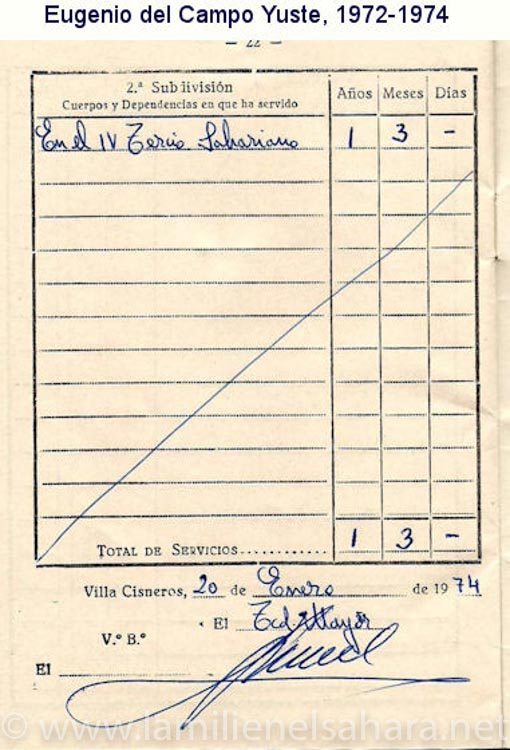 Eugenio del Campo Yuste, 1972-1974
— 22 —
2.ª Subdivisión
Cuerpos y Dependencias en que ha servido
Años Meses Días
En el IV Tercio Sahariano 1 3 -
TOTAL DE SERVICIOS........... 1 3 -
Villa Cisneros, 20 de Enero de 1974
El Mayor
V.º B.º
El
© www.lamilienelsahara.net